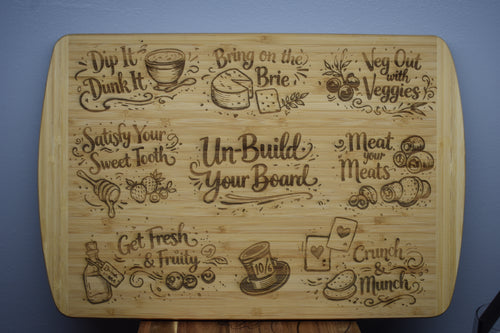 Dip It
Dunk It
Bring on the
Brie
Veg Out
with
Veggies
Satisfy Your
Sweet Tooth
Un-Build
Your Board
Meat
your
Meats
Get Fresh
& Fruity
10/6
Crunch
&
Munch